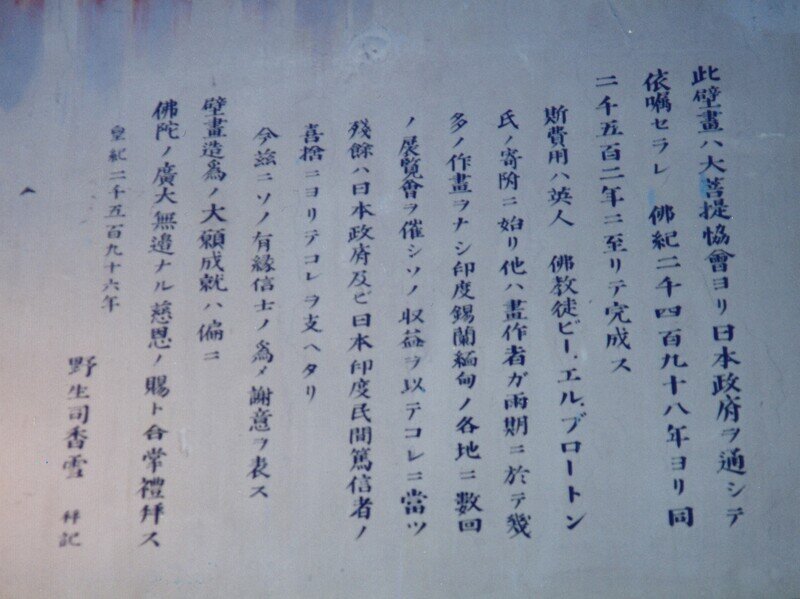 此壁畫ハ大菩提協會ヨリ日本政府ヲ通シテ
依囑セラレ 佛紀二千四百九十八年ヨリ同
二千五百二年ニ至リテ完成ス
斯費用ハ英人 佛教徒ビー．エル．ブロートン
氏ノ寄附ニ始リ他ハ畫作者ガ雨期ニ於テ幾
多ノ作畫ヲナシ印度錫蘭緬甸ノ各地ニ數回
ノ展覽會ヲ催シソノ収益ヲ以テコレニ當ツ
殘餘ハ日本政府及ビ日本印度民間篤信者ノ
喜捨ニヨリテコレヲ支ヘタリ
今茲ニソノ有縁信士ノ爲メ謝意ヲ表ス
壁畫造爲ノ大願成就ハ偏ニ
佛陀ノ廣大無邉ナル慈恩ノ賜ト合掌禮拜ス
皇紀二千五百九十六年
野生司香雪 拜記